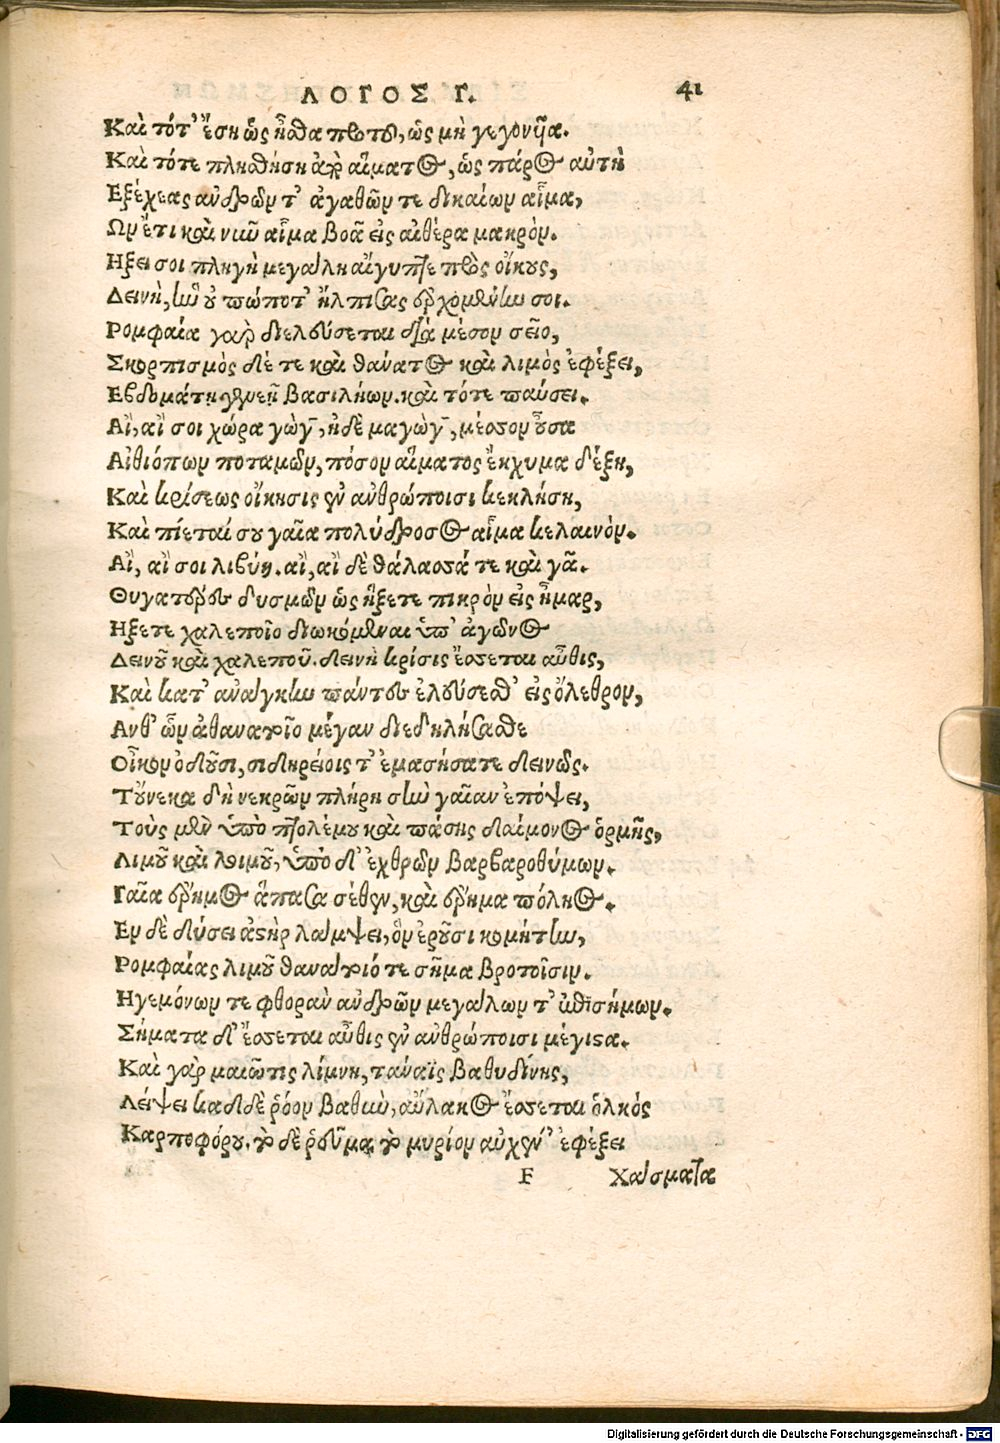 ΛΟΓΟΣ Γ. 41
Καὶ τότ' ἔσῃ ὡς ἦσθα πρὸ τοῦ, ὡς μὴ γεγονῦα.
Καὶ τότε πληθήσῃ ἀφ' αἵματος, ὡς πάρος αὐτὴ
Εξέχεας ἀνδρῶν τ' ἀγαθῶν τε δικαίων αἷμα,
Ων ἔτι καὶ νιῦ αἷμα βοᾷ εἰς αἰθέρα μακρὸν.
Ηξει σοι πληγὴ μεγάλη αἴγυπτε πρὸς οἴκους,
Δεινὴ, ἣν οὐ πώποτ' ἤλπισας ἐρχομένην σοι.
Ρομφαία γαρ διελεύσεται διὰ μέσον σεῖο,
Σκορπισμὸς δέ τε καὶ θάνατος καὶ λιμὸς ἐφέξει,
Εβδομάτῃ γενεῇ βασιλήων. καὶ τότε παύσει.
Αἲ, αἲ σοι χώρα γὼγ, ἠδὲ μαγὼγ, μέσσον οὖσα
Αἰθιόπων ποταμῶν, πόσον αἵματος ἔκχυμα δέξῃ,
Καὶ κρίσεως οἴκησις ἐν ἀνθρώποισι κεκλήσῃ,
Καὶ πίεταί σου γαῖα πολύδροσος αἷμα κελαινὸν.
Αἲ, αἲ σοι λιβύη. αἲ, αἲ δὲ θάλασσά τε καὶ γᾶ.
Θυγατέρες δυσμῶν ὡς ἥξετε πικρὸν εἰς ἦμαρ,
Ηξετε χαλεποῖο διωκόμεναι ὑπ' ἀγῶνος
Δεινοῦ καὶ χαλεποῦ. δεινὴ κρίσις ἔσσεται αὖθις,
Καὶ κατ' ἀνάγκην πάντες ἐλεύσεσθ' εἰς ὄλεθρον,
Ανθ' ὧν ἀθανάτοιο μέγαν διεδηλήσασθε
Οἶκον ὀδοῦσι, σιδηρείοις τ' ἐμασήσατε δεινῶς.
Τοὔνεκα δὴ νεκρῶν πλήρη σὴν γαῖαν ἐπόψει,
Τοὺς μὲν ὑπὸ πτολέμου καὶ πάσης δαίμονος ὁρμῆς,
Λιμοῦ καὶ λοιμοῦ, ὑπὸ δ' ἐχθρῶν βαρβαροθύμων.
Γαῖα ἔρημος ἅπασα σέθεν, καὶ ἔρημα πόληος.
Εν δὲ δύσει ἀστὴρ λάμψει, ὃν ἐροῦσι κομήτην,
Ρομφαίας λιμοῦ θανάτοιό τε σῆμα βροτοῖσιν.
Ηγεμόνων τε φθορὰν ἀνδρῶν μεγάλων τ' ἐπισήμων.
Σήματα δ' ἔσσεται αὖθις ἐν ἀνθρώποισι μέγιστα.
Καὶ γὰρ μαιῶτις λίμνη, τάναϊς βαθυδίνης,
Λείψει καδδὲ ῥόον βαθὺν, αὔλακος ἔσσεται ὁλκὸς
Καρποφόρου. τὸ δὲ ῥεῦμα τὸ μυρίον αὐχέν' ἐφέξει
F Χάσματα